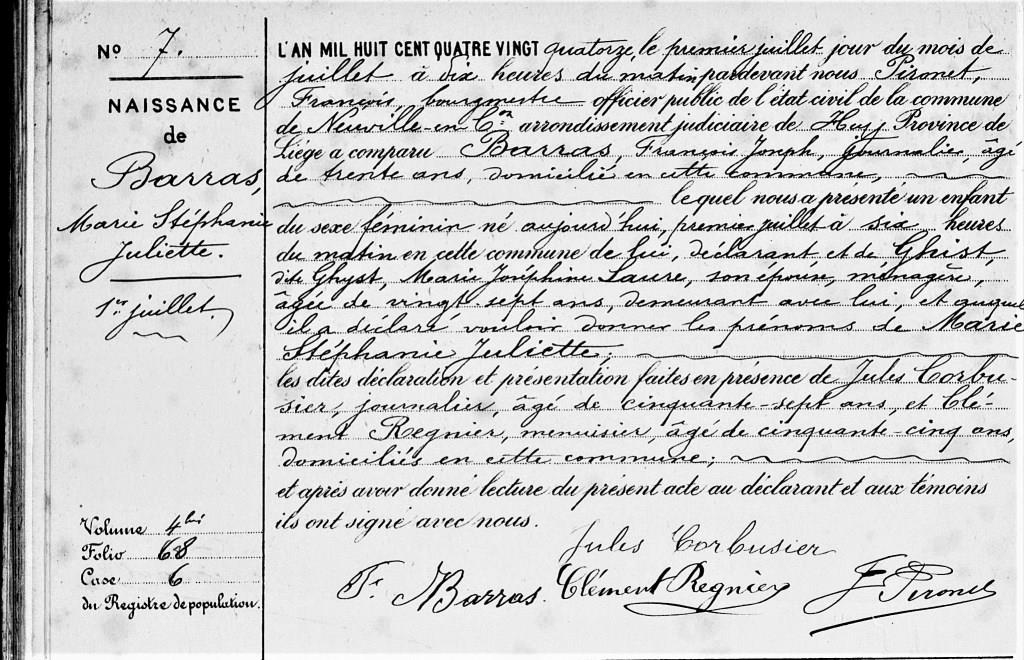 No 7.
NAISSANCE
de
Barras,
Marie Stéphanie
Juliette.
1er juillet
Volume 4bis
Folio 68
Case 6
du Registre de population.
L'AN MIL HUIT CENT QUATRE VINGT quatorze, le premier juillet jour du mois de
juillet à dix heures du matin pardevant nous Pironet,
François, bourgmestre officier public de l'état civil de la commune
de Neuville-en-Con arrondissement judiciaire de Huy Province de
Liége a comparu Barras, François Joseph, journalier, âgé
de trente ans, domicilié en cette commune,
lequel nous a présenté un enfant
du sexe féminin né aujourd'hui, premier juillet à six heures
du matin en cette commune de lui, déclarant et de Ghist,
dite Ghyst, Marie Joséphine Laure, son épouse, ménagère,
âgée de vingt-sept ans, demeurant avec lui, et auquel
il a déclaré vouloir donner les prénoms de Marie
Stéphanie Juliette;
les dites déclaration et présentation faites en présence de Jules Corbu-
sier, journalier, âgé de cinquante-sept ans, et Clé-
ment Regnier, menuisier, âgé de cinquante-cinq ans,
domiciliés en cette commune;
et après avoir donné lecture du présent acte au déclarant et aux témoins
ils ont signé avec nous.
Jules Corbusier
Fs Barras. Clément Regnier F Pironet